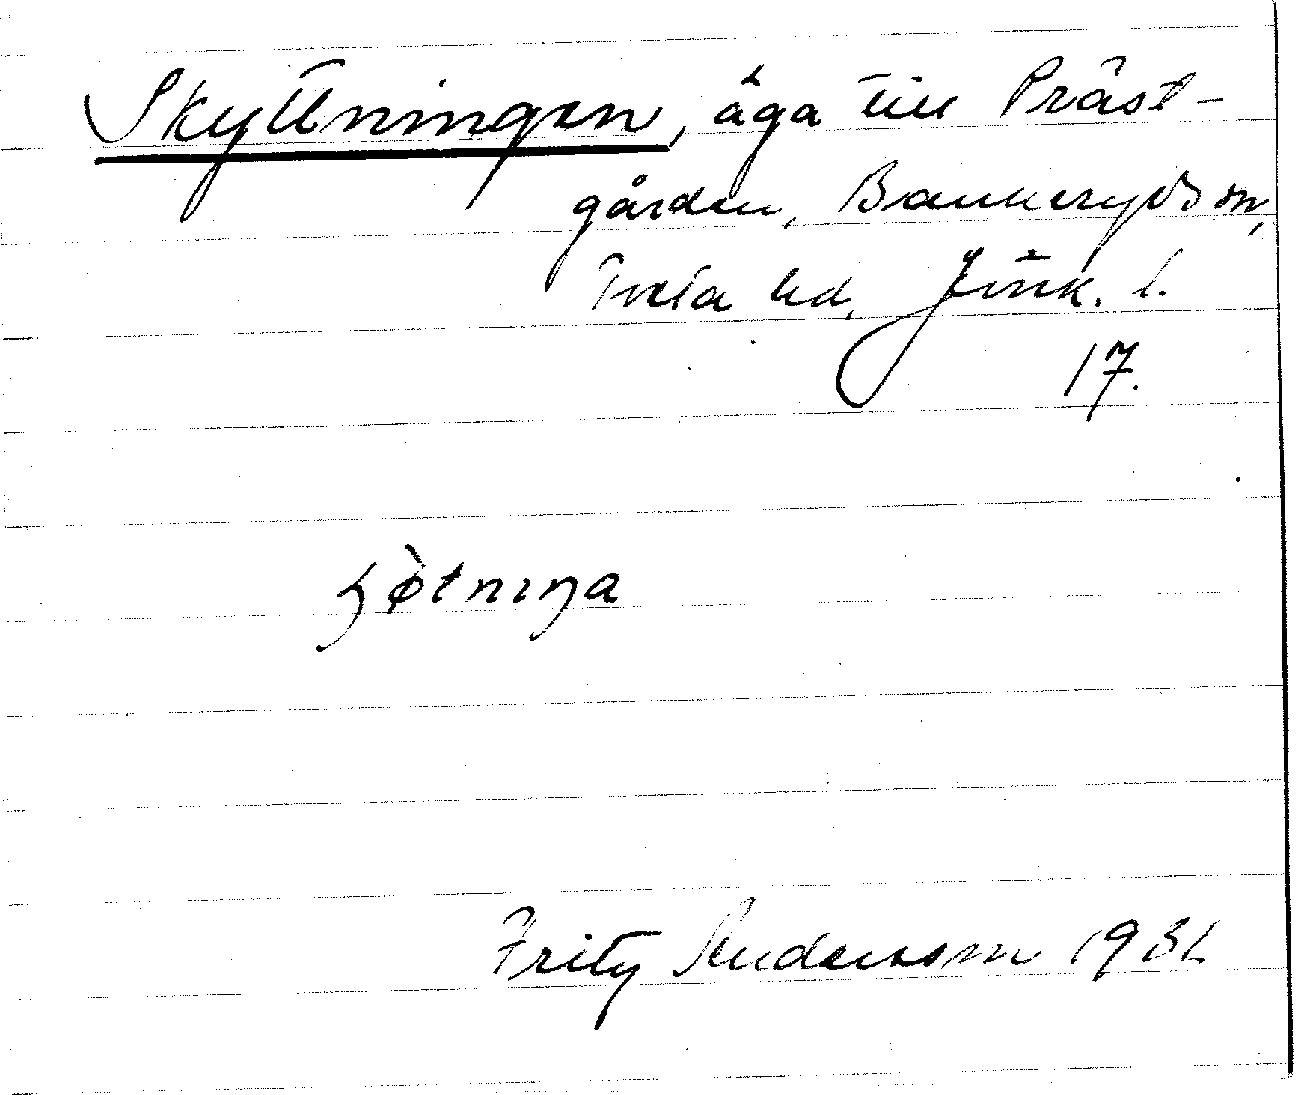 Skyttningen, äga till Präst-
gården, Bankeryds sn,
Tveta hd, Jönk. l.
17.
ʂø̀tnıŋa
Fritz Andersson 1931